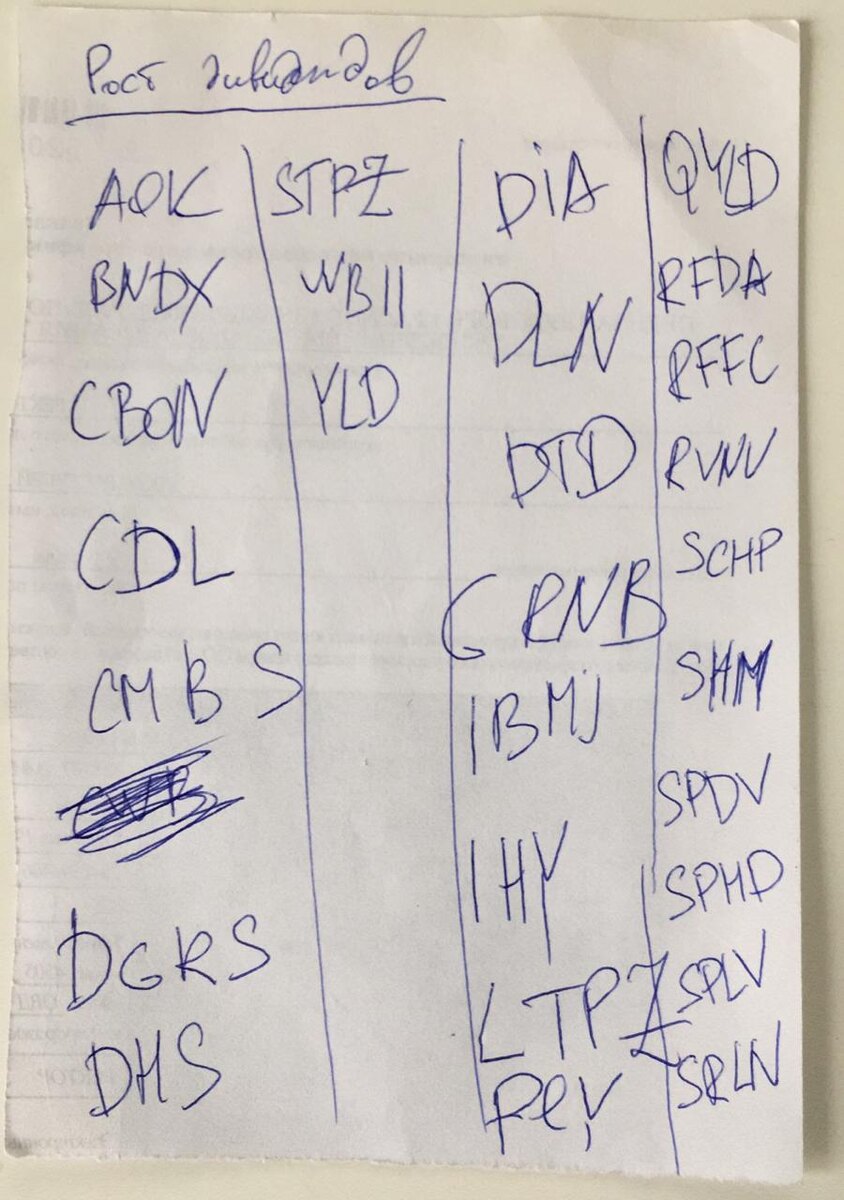 Рост дивидендов
AOK
BNDX
CBON
CDL
CMBS
DGRS
DHS
STPZ
WBII
YLD
DiA
DLN
DTD
GRNB
IBMJ
IHY
LTPZ
PEY
QYLD
RFDA
RFFC
RVNU
SCHP
SHM
SPDV
SPHD
SPLV
SRLN